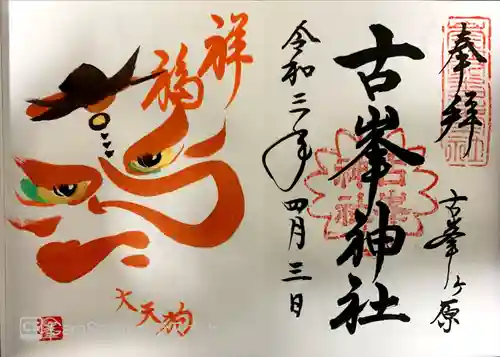 奉拝
古峯ヶ原
古峯神社
令和三年四月三日
祥
福
大天狗